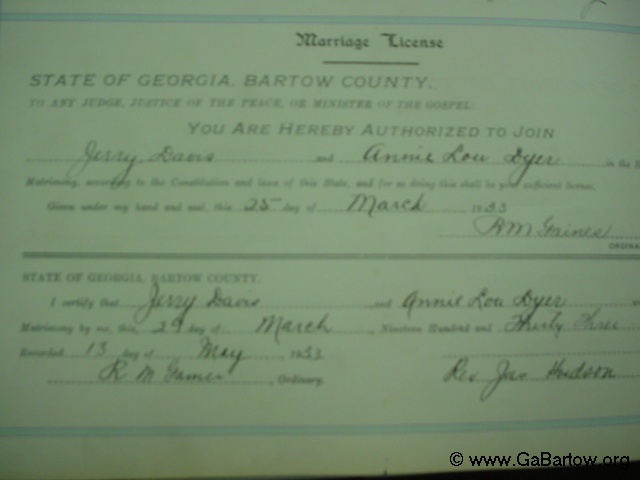 Marriage License
STATE OF GEORGIA, BARTOW COUNTY.
TO ANY JUDGE, JUSTICE OF THE PEACE, OR MINISTER OF THE GOSPEL:
YOU ARE HEREBY AUTHORIZED TO JOIN
Jerry Davis and Annie Lou Dyer in the
Matrimony, according to the Constitution and laws of this State, and for so doing this shall be your sufficient license.
Given under my hand and seal, this 25 day of March 1933
R M Gaines
ORDINA
STATE OF GEORGIA, BARTOW COUNTY.
I certify that Jerry Davis and Annie Lou Dyer
Matrimony by me, this 29 day of March, Nineteen Hundred and Thirty Three
Recorded 13 day of May 1933
R M Gaines, Ordinary. Rev Jas Hudson
© www.GaBartow.org